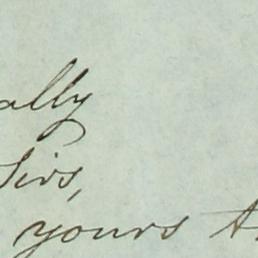 ally
Sirs,
yours